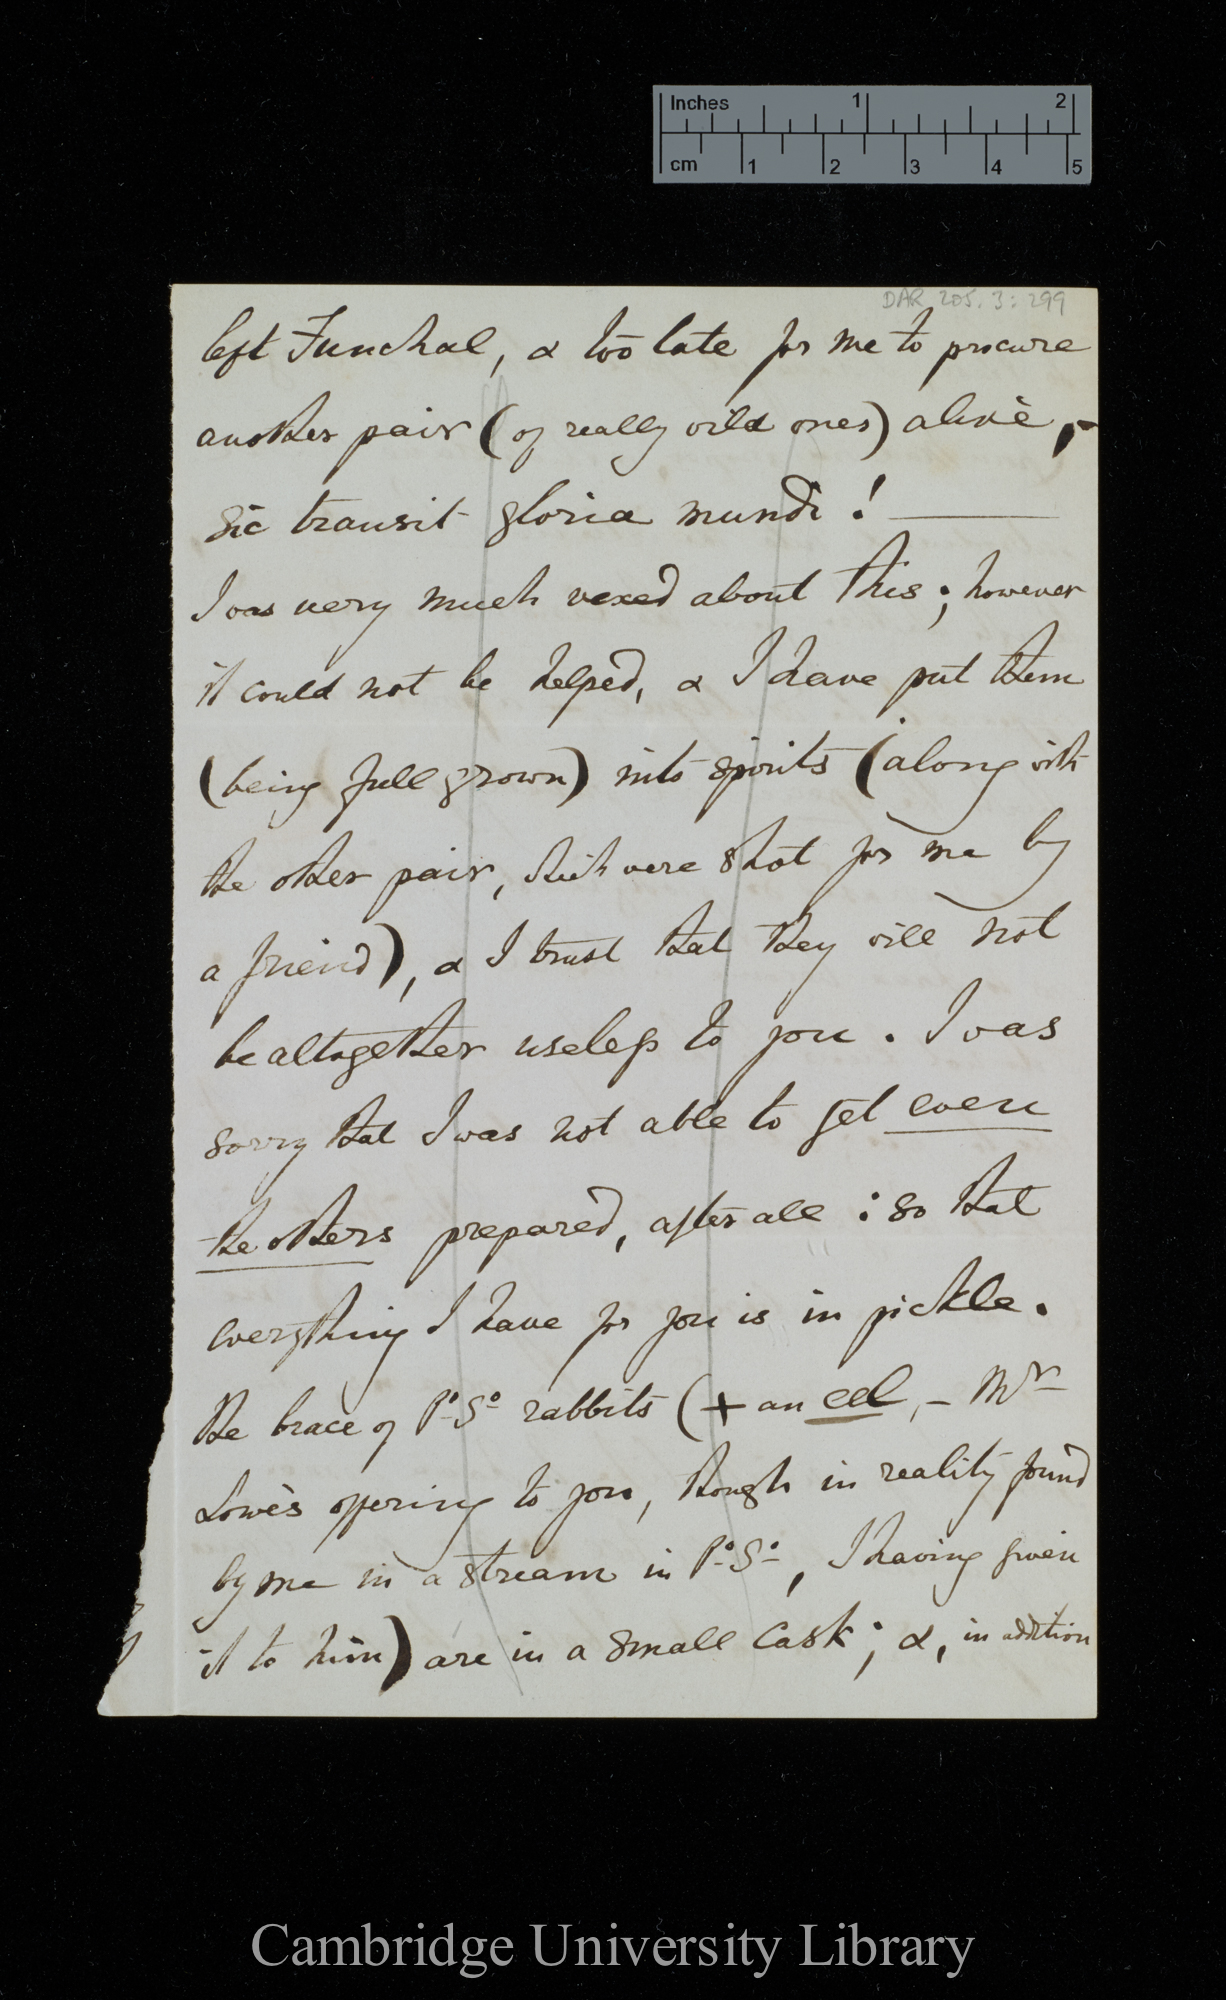 Inches 1 2
cm 1 2 3 4 5
DAR 205.3: 299
left Funchal, & too late for me to procure
another pair (of really wild ones) alive, –
sic transit gloria mundi! —
I was very much vexed about this; however
it could not be helped, & I have put them
(being full grown) into spirits (along with
the other pair, which were shot for me by
a friend), & I trust that they will not
be altogether useless to you. I was
sorry that I was not able to get even
the others prepared, after all: so that
everything I have for you is in pickle.
The brace of Pº. Sº. rabbits (+ an eel, – Mr
Lowe's offering to you, though in reality found
by me in a stream in Pº. Sº., I having given
it to him) are in a small cask; &, in addition
Cambridge University Library